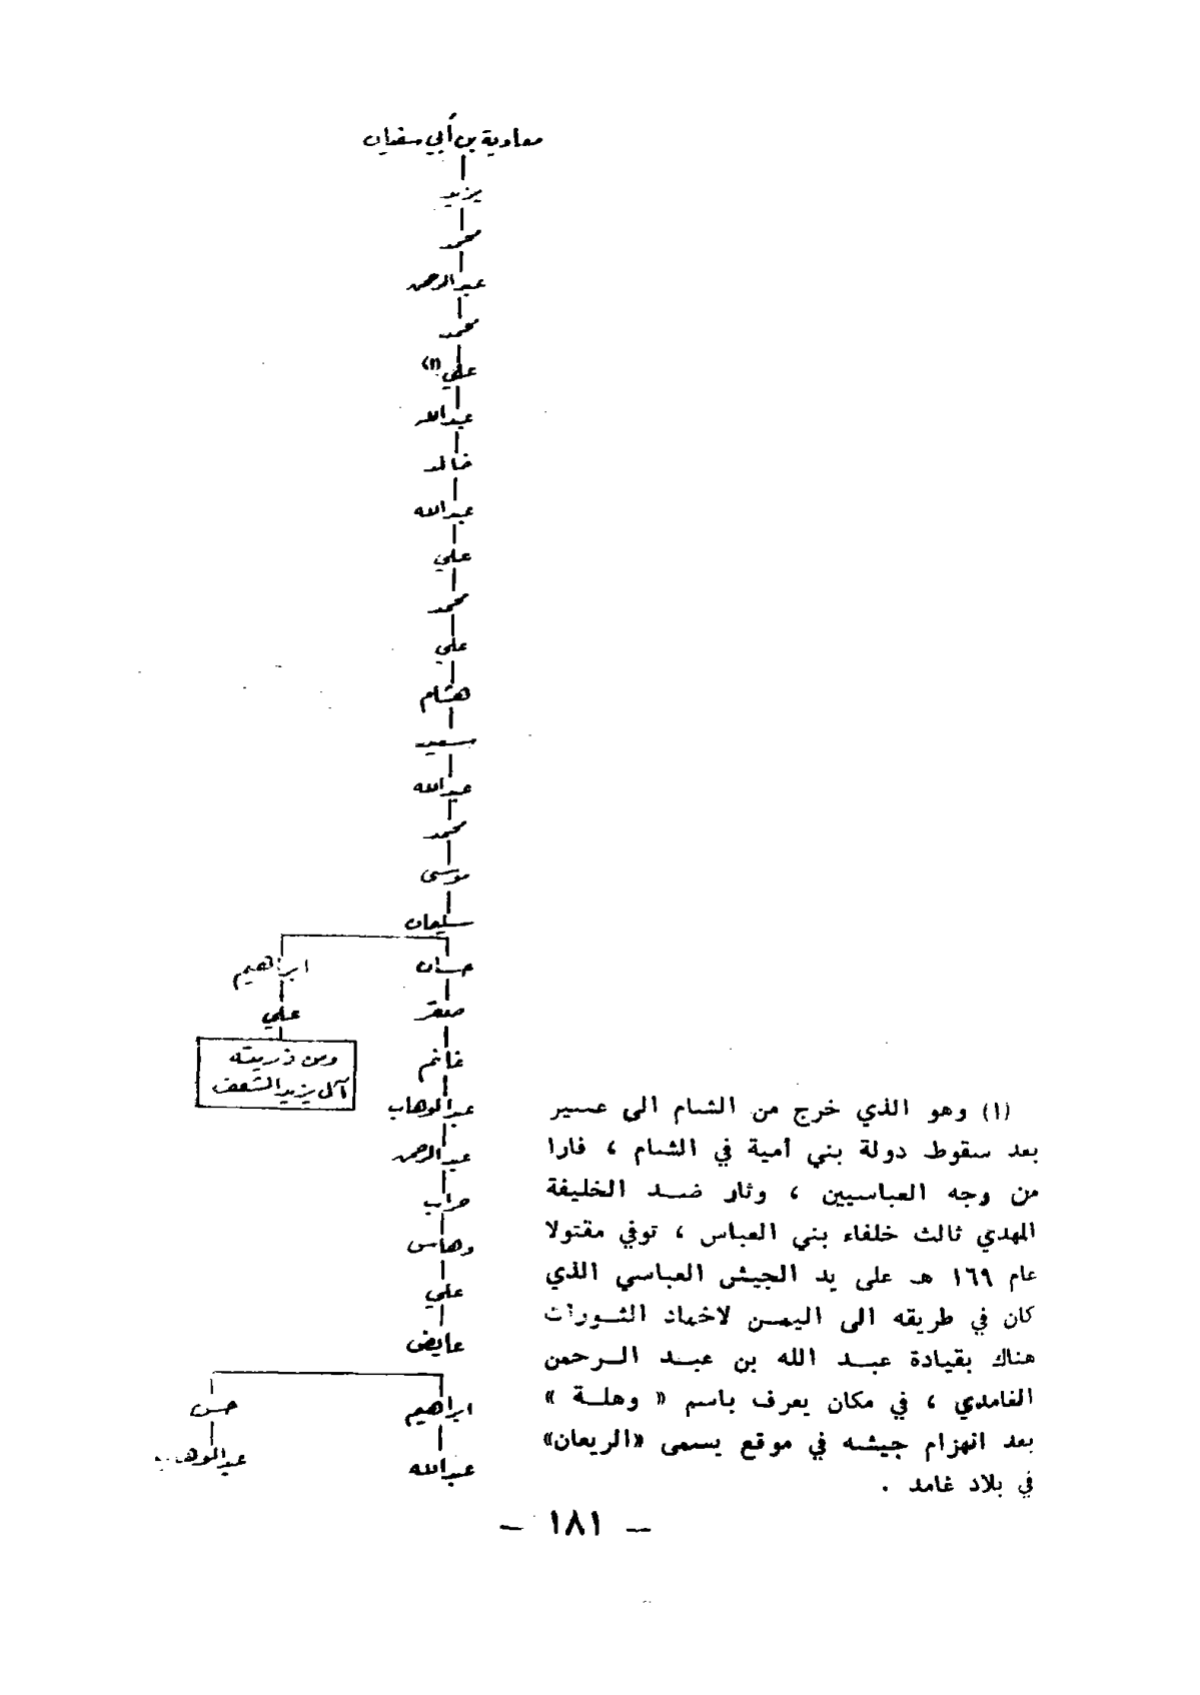 معاوية بن أبي سفيان
يزيد
محمد
عبدالرحمن
محمد
علي (١)
عبدالله
خالد
عبدالله
علي
محمد
علي
هشام
سعيد
عبدالله
محمد
موسى
سليمان
حسان
ابراهيم
صقر
علي
غانم
ومن ذريته
آل يزيد الشعف
عبدالوهاب
عبدالرحمن
حراب
وهاس
علي
عايض
ابراهيم
حسن
عبدالله
عبدالوهاب
(١) وهو الذي خرج من الشام الى عسير
بعد سقوط دولة بني أمية في الشام ، فارا
من وجه العباسيين ، وثار ضد الخليفة
المهدي ثالث خلفاء بني العباس ، توفي مقتولا
عام ١٦٩ هـ على يد الجيش العباسي الذي
كان في طريقه الى اليمن لاخماد الثورات
هناك بقيادة عبد الله بن عبد الرحمن
الغامدي ، في مكان يعرف باسم « وهلة »
بعد انهزام جيشه في موقع يسمى «الريعان»
في بلاد غامد .
– ١٨١ –